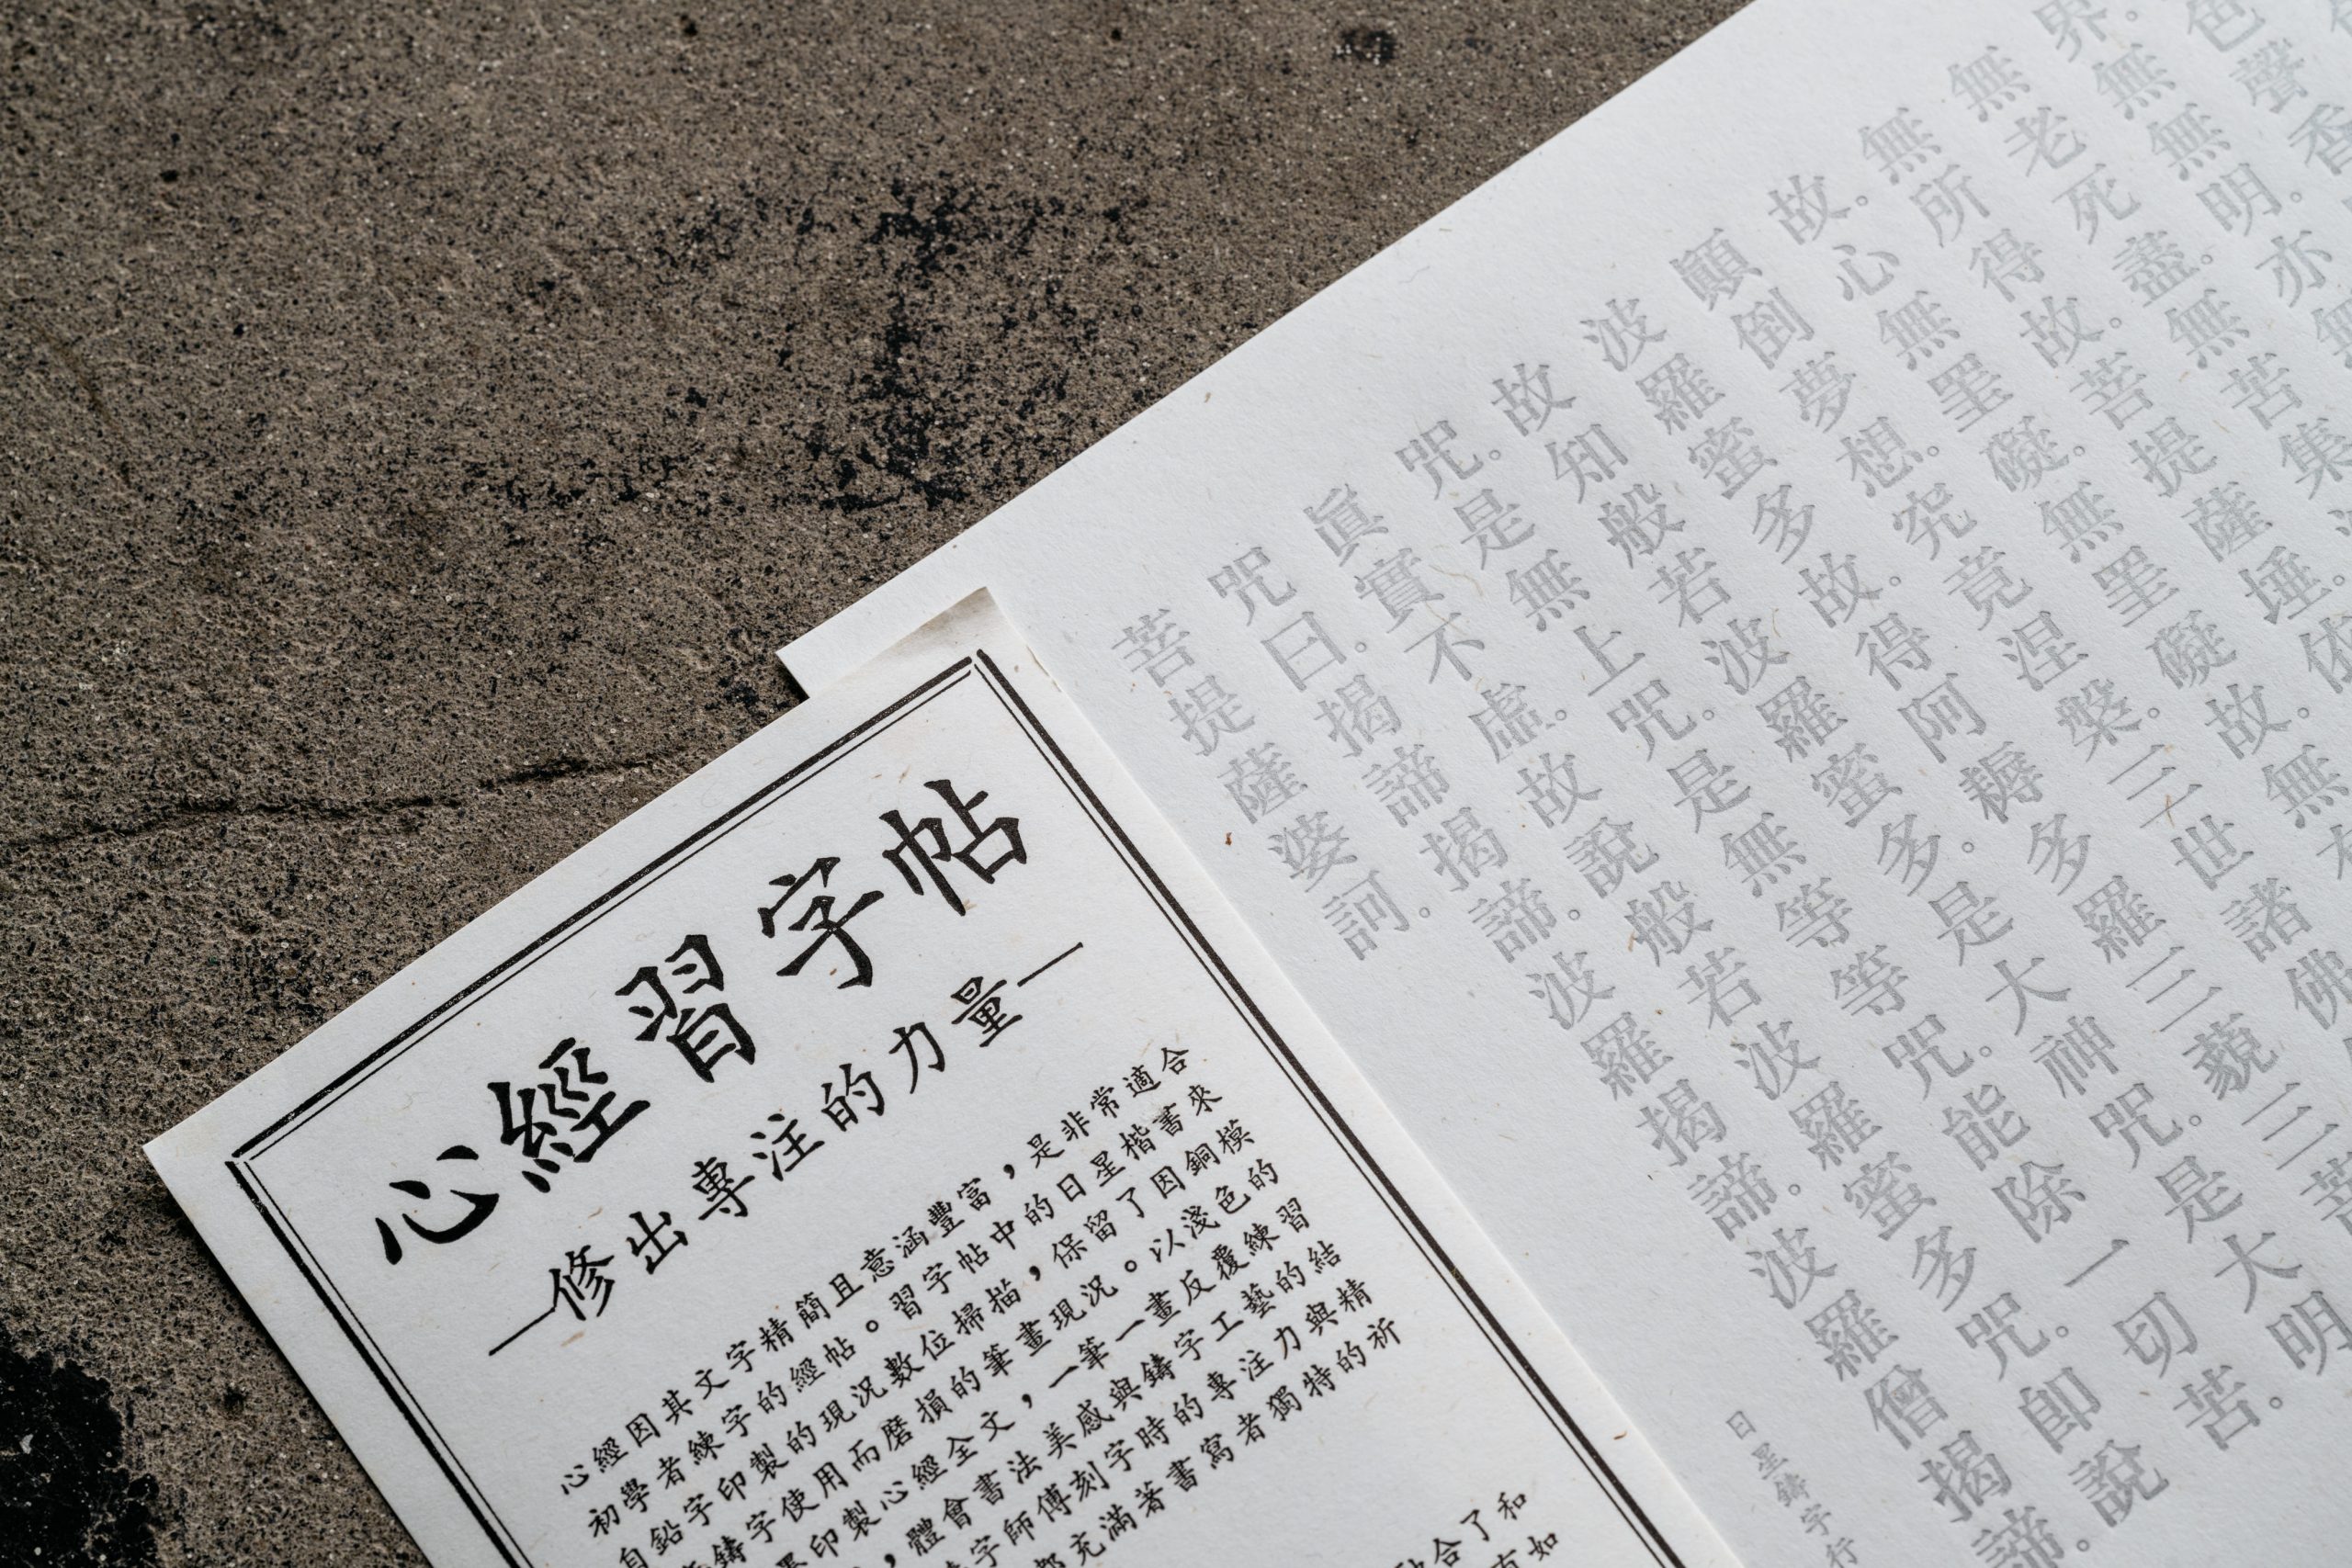 心經習字帖
—修出專注的力量—
心經因其文字精簡且意涵豐富，是非常適合
初學者練字的經帖。習字帖中的日星楷書來
自鉛字印製的現況數位掃描，保留了因銅模
鑄字使用而磨損的筆畫現況。以淺色的
墨印製心經全文，一筆一畫反覆練習
，體會書法美感與鑄字工藝的結
字師傅刻字時的專注力與精
都充滿著書寫者獨特的祈
合了和
如
色聲香
界。無無明。亦無
無老死盡。無苦集
無所得故。菩提薩埵。依
故。心無罣礙。無罣礙故。無
顛倒夢想。究竟涅槃。三世諸佛
波羅蜜多故。得阿耨多羅三藐三菩
故知般若波羅蜜多。是大神咒。是大明
咒。是無上咒。是無等等咒。能除一切苦。
眞實不虛。故說般若波羅蜜多咒。卽說
咒曰。揭諦揭諦。波羅揭諦。波羅僧揭諦。
菩提薩婆訶。
日星鑄字行